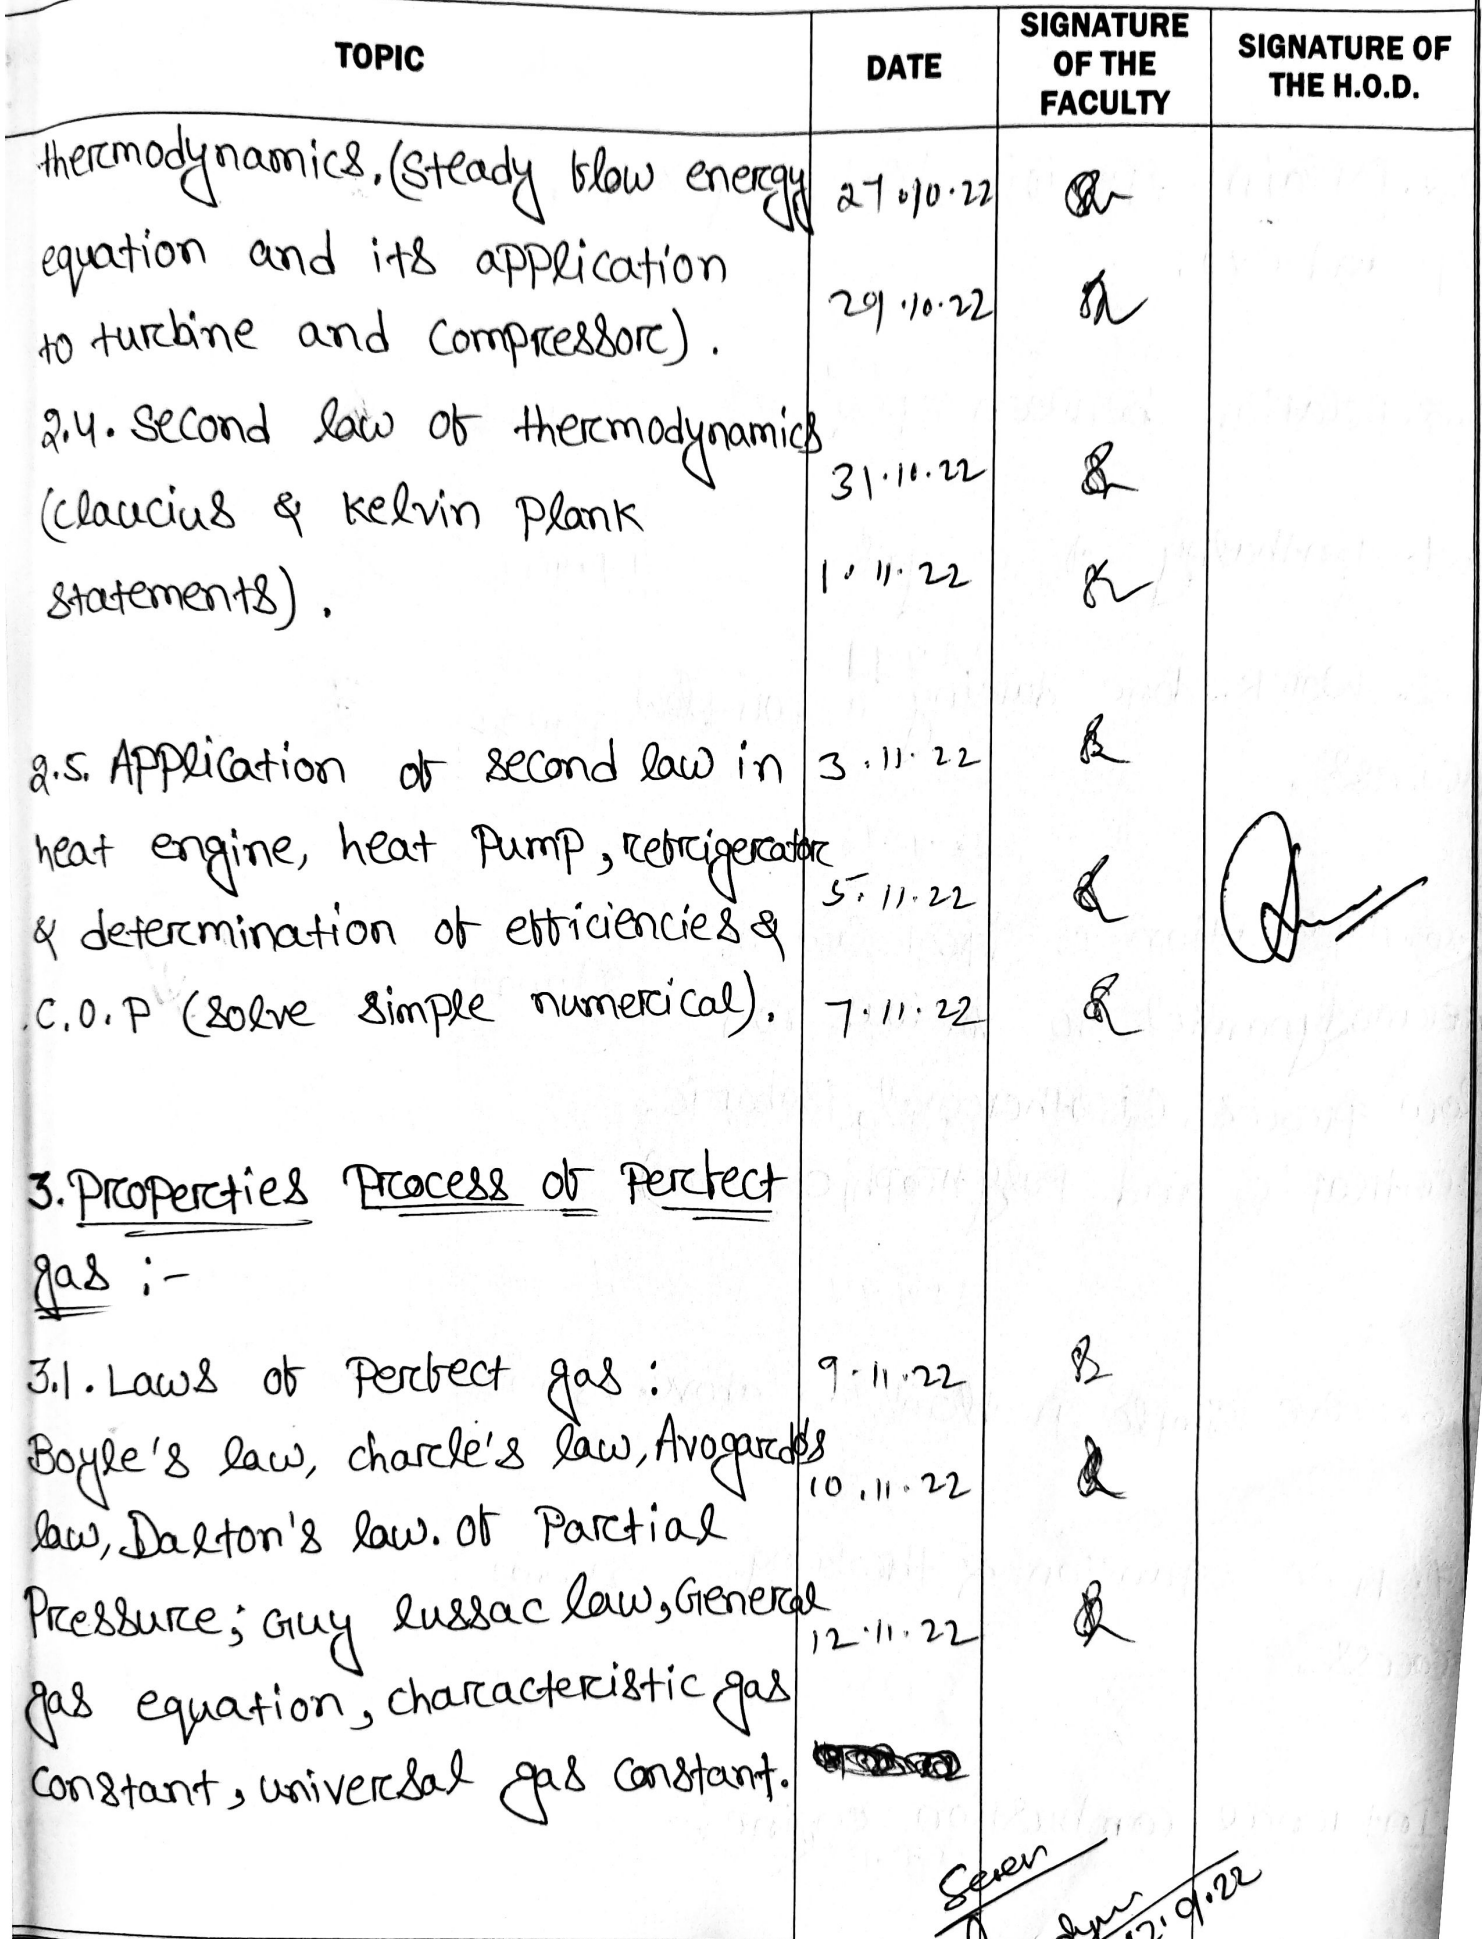 TOPIC
DATE
SIGNATURE OF THE FACULTY
SIGNATURE OF THE H.O.D.
thermodynamics. (Steady flow energy 27.10.22
equation and its application
to turbine and compressor). 29.10.22
2.4. Second law of thermodynamics
(claucius & kelvin plank 31.10.22
statements). 1.11.22
2.5. Application of second law in 3.11.22
heat engine, heat pump, refrigerator
& determination of efficiencies & 5.11.22
C.O.P (solve simple numerical). 7.11.22
3. Properties Process of Perfect
gas :-
3.1. Laws of Perfect gas : 9.11.22
Boyle's law, charle's law, Avogardo's
law, Dalton's law. of Partial 10.11.22
Pressure; Guy lussac law, General
gas equation, characteristic gas 12.11.22
constant, universal gas constant.